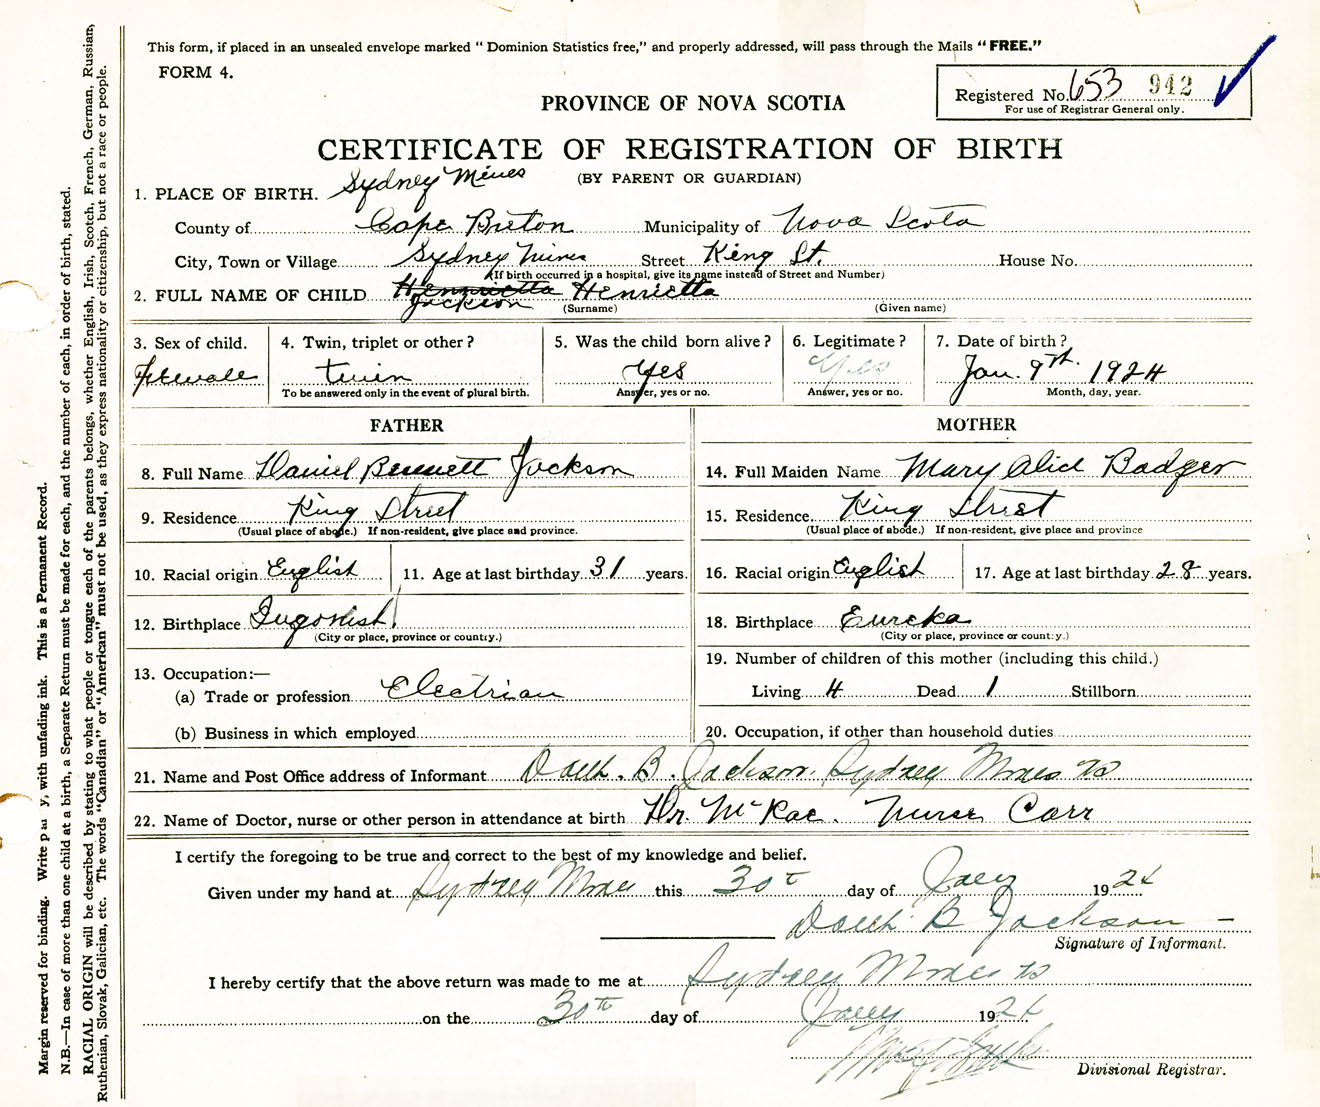 This form, if placed in an unsealed envelope marked "Dominion Statistics free," and properly addressed, will pass through the Mails "FREE."
FORM 4.
Registered No. 653 942
For use of Registrar General only.
PROVINCE OF NOVA SCOTIA
CERTIFICATE OF REGISTRATION OF BIRTH
(BY PARENT OR GUARDIAN)
1. PLACE OF BIRTH. Sydney Mines
County of Cape Breton Municipality of Nova Scota
City, Town or Village Sydney Mines Street King St. House No.
(If birth occurred in a hospital, give its name instead of Street and Number)
2. FULL NAME OF CHILD Henrietta Henrietta
Jackson (Surname) (Given name)
3. Sex of child. 4. Twin, triplet or other? 5. Was the child born alive? 6. Legitimate? 7. Date of birth?
Female twin Yes Yes Jan. 9th. 1924
To be answered only in the event of plural birth. Answer, yes or no. Answer, yes or no. Month, day, year.
FATHER MOTHER
8. Full Name Daniel Bennett Jackson 14. Full Maiden Name Mary Alice Badger
9. Residence King Street 15. Residence King Street
(Usual place of abode.) If non-resident, give place and province. (Usual place of abode.) If non-resident, give place and province
10. Racial origin English 11. Age at last birthday 31 years. 16. Racial origin English 17. Age at last birthday 28 years.
12. Birthplace Ingonish 18. Birthplace Eureka
(City or place, province or country.) (City or place, province or country.)
13. Occupation:— 19. Number of children of this mother (including this child.)
(a) Trade or profession Electrian Living 4 Dead 1 Stillborn
(b) Business in which employed 20. Occupation, if other than household duties
21. Name and Post Office address of Informant B. Jackson. Sydney Mines NS
22. Name of Doctor, nurse or other person in attendance at birth Dr. McRae. Nurse Carr
I certify the foregoing to be true and correct to the best of my knowledge and belief.
Given under my hand at Sydney Mines this 30th day of Jany 1924
B Jackson
Signature of Informant.
I hereby certify that the above return was made to me at Sydney Mines NS
on the 30th day of Jany 1924
Divisional Registrar.
Margin reserved for binding. Write y, with unfading ink. This is a Permanent Record.
N.B.—In case of more than one child at a birth, a Separate Return must be made for each, and the number of each, in order of birth, stated.
RACIAL ORIGIN will be described by stating to what people or tongue each of the parents belongs, whether English, Irish, Scotch, French, German, Russian,
Ruthenian, Slovak, Galician, etc. The words "Canadian" or "American" must not be used, as they express nationality or citizenship, but not a race or people.